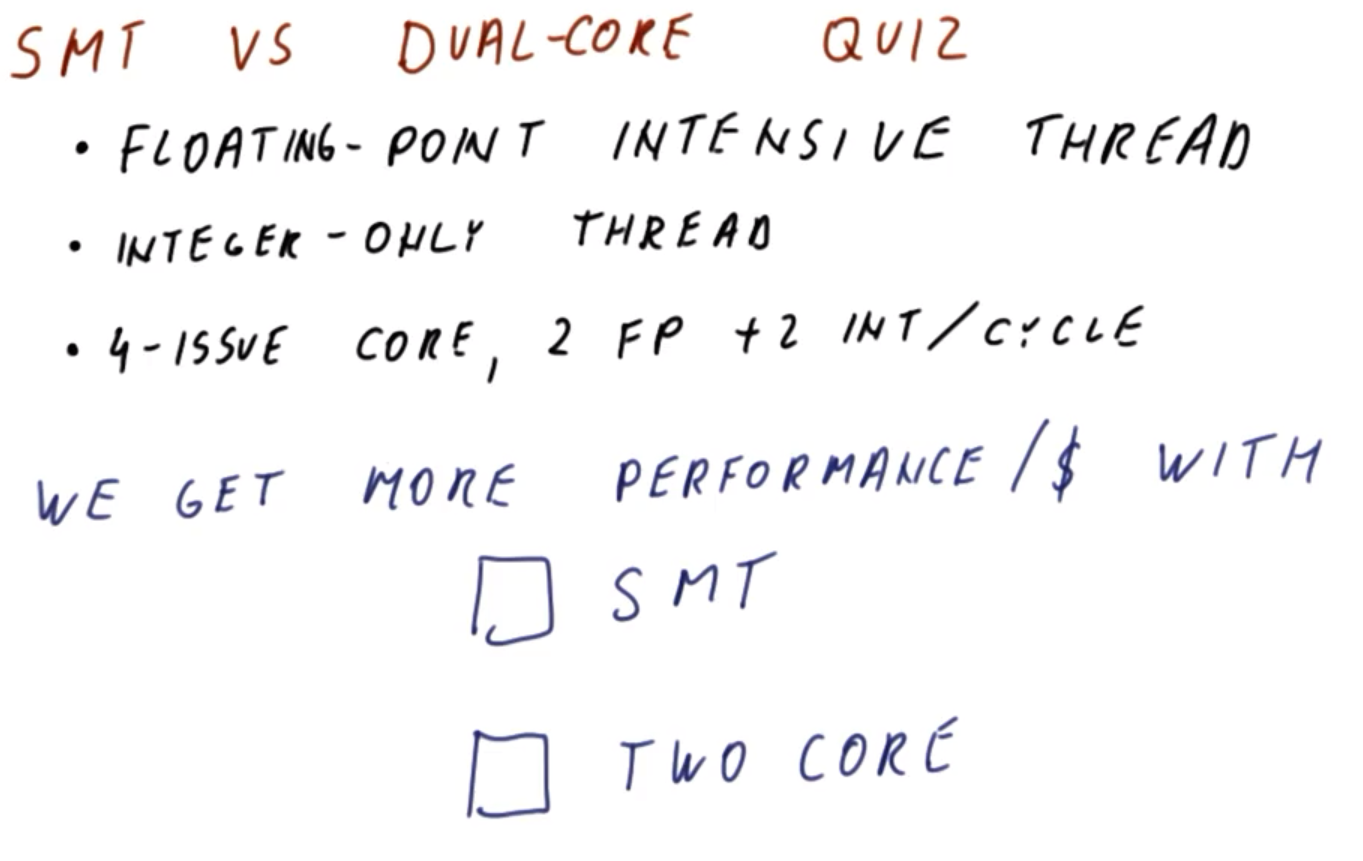 SMT VS DUAL-CORE QUIZ
• FLOATING-POINT INTENSIVE THREAD
• INTEGER-ONLY THREAD
• 4-ISSUE CORE, 2 FP + 2 INT/CYCLE
WE GET MORE PERFORMANCE/$ WITH
SMT
TWO CORE